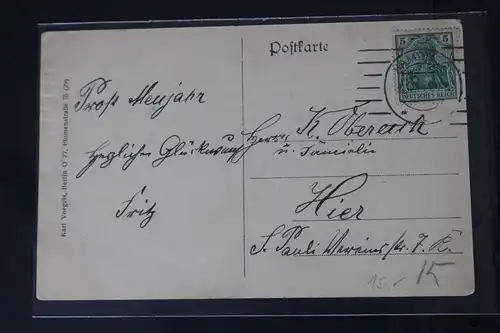 Postkarte
5 5
DEUTSCHES REICH
Karl Voegels, Berlin O 27, Blumenstraße 75 (79)
Prost Neujahr
Herzlichen Glückwunsch
Fritz
Herrn K.
u. Familie
Hier
S. Pauli Vereinsstr. 7. K.
15,-
K